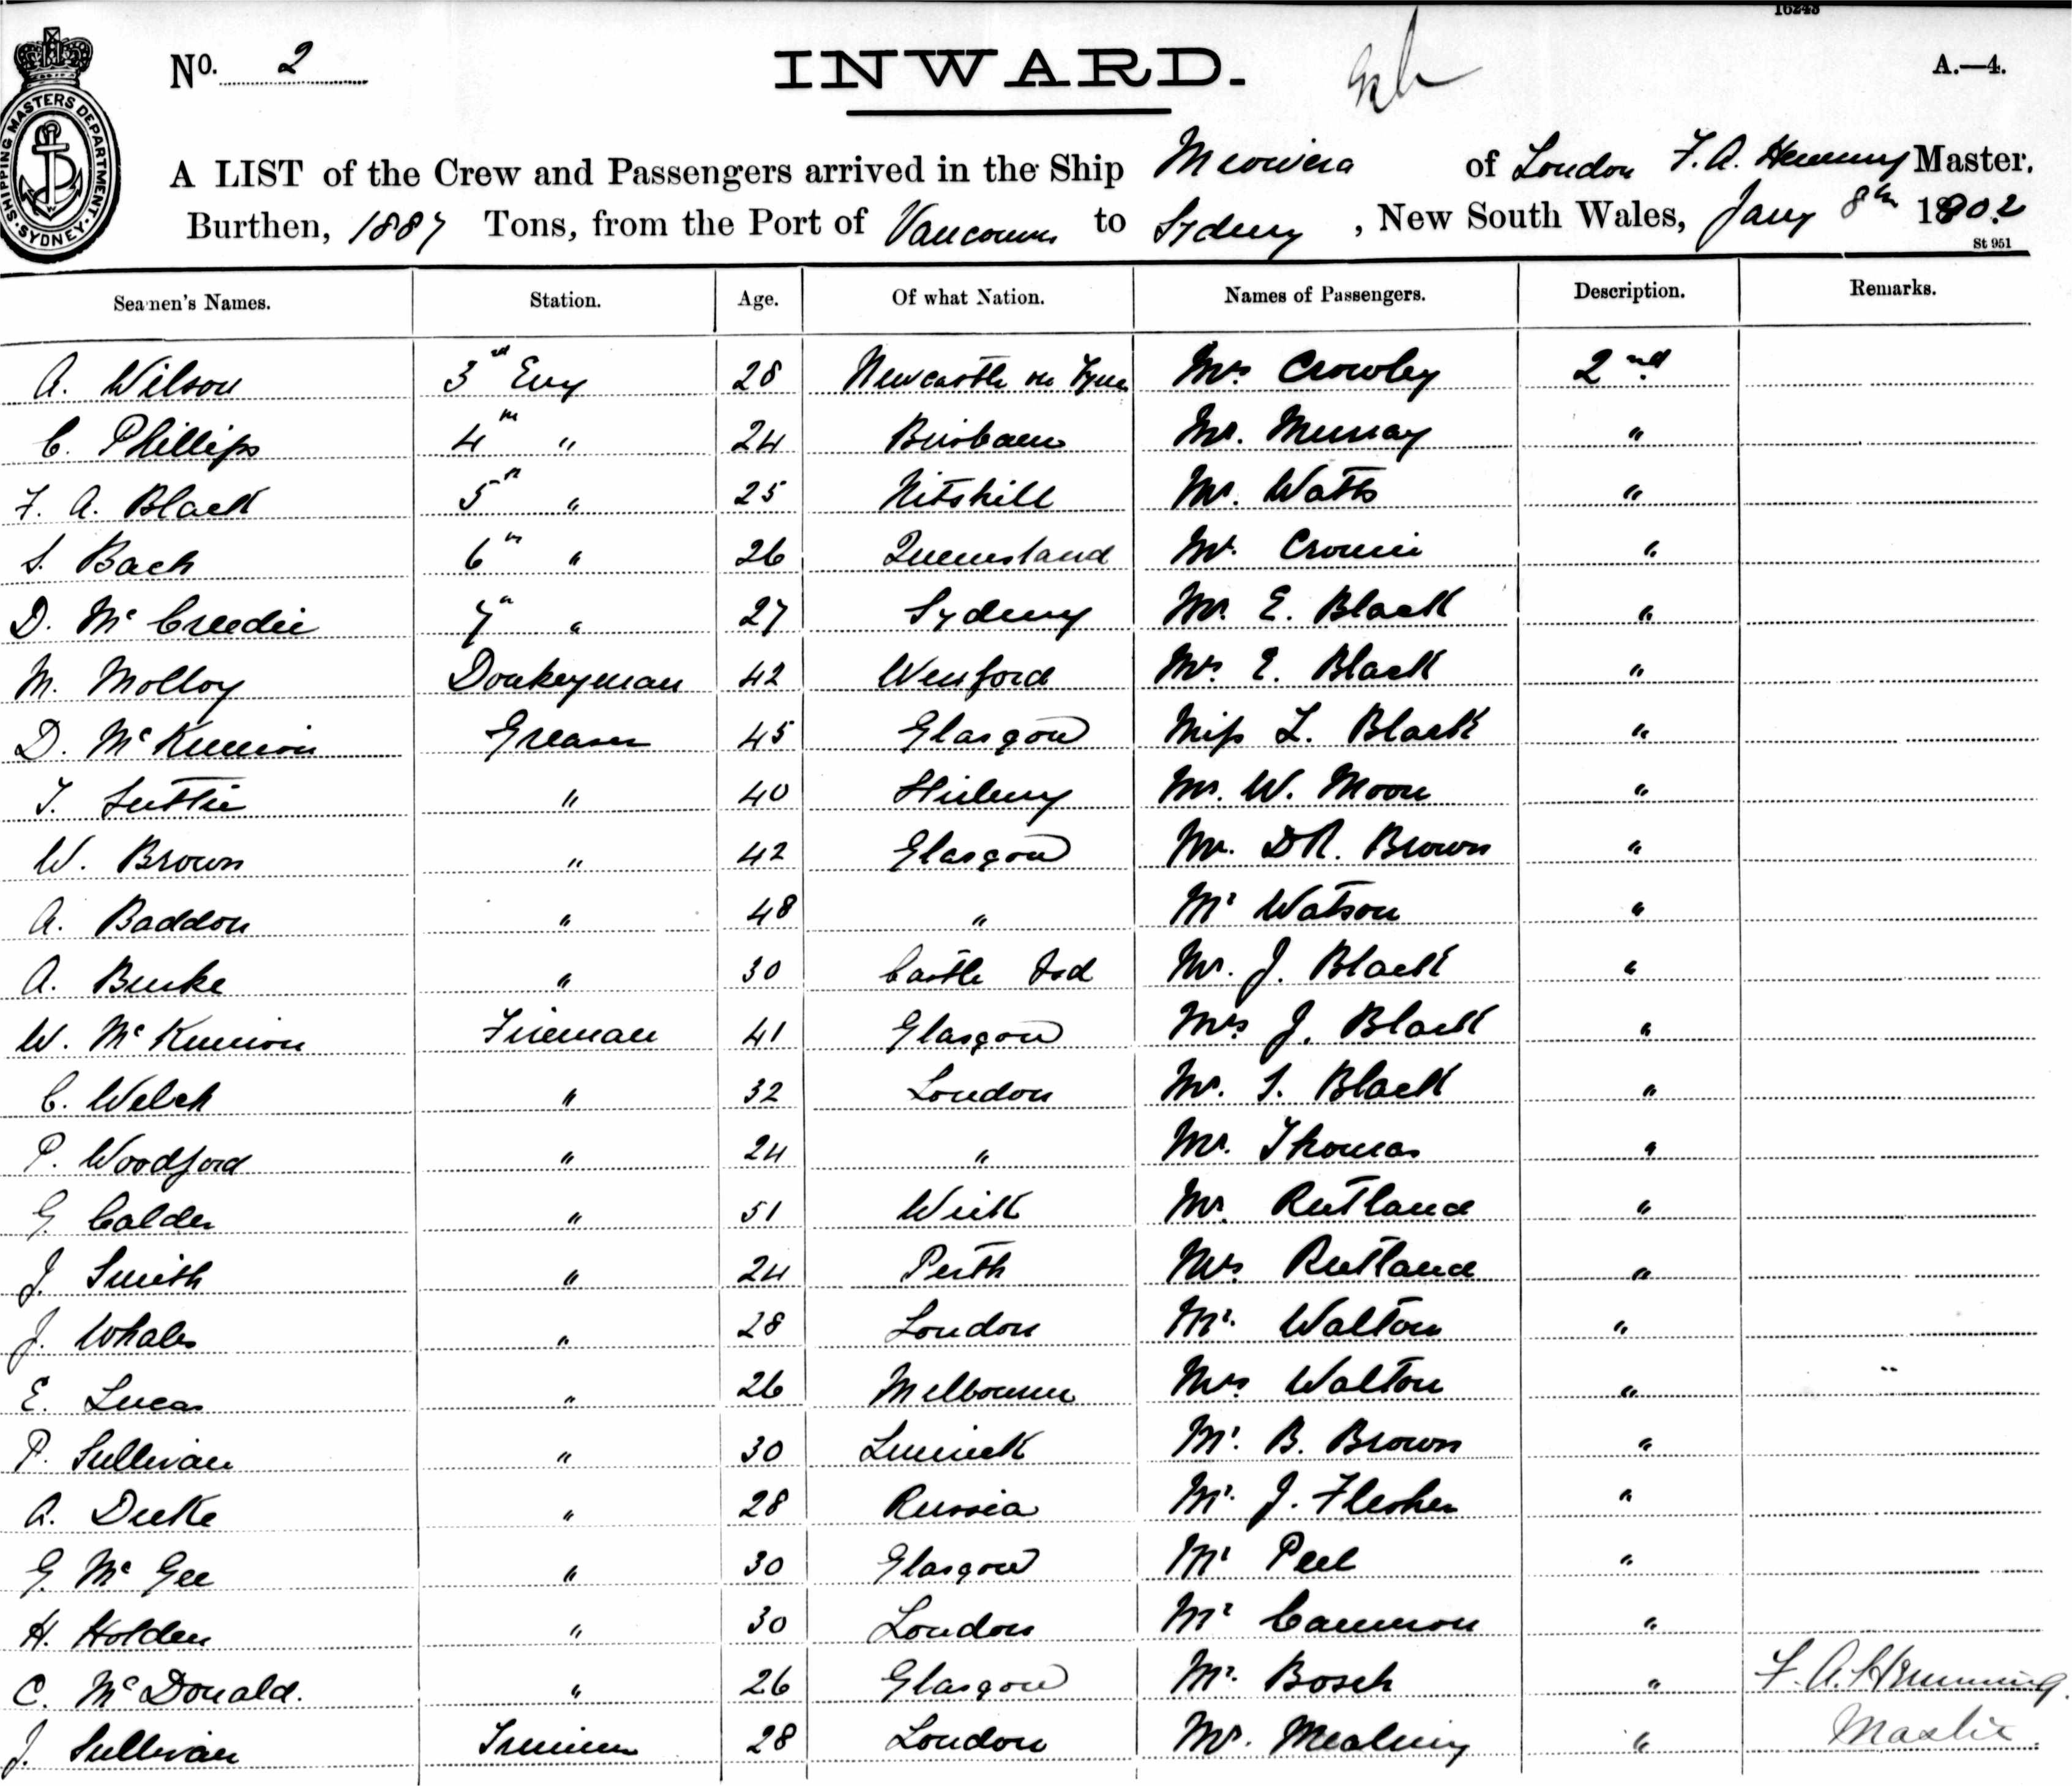 16243
No. 2 INWARD. A.—4.
SHIPPING MASTERS DEPARTMENT. SYDNEY
A LIST of the Crew and Passengers arrived in the Ship Miowera of London F. A. Hemming Master,
Burthen, 1887 Tons, from the Port of Vancouver to Sydney, New South Wales, Jany 8th 1902
St 951
Seamen's Names. Station. Age. Of what Nation. Names of Passengers. Description. Remarks.
A. Wilson 3rd Eng 28 Newcastle on Tyne Mrs Crowley 2nd
C. Phillips 4th " 24 Brisbane Mr. Murray "
F. A. Black 5th " 25 Nitshill Mr. Watts "
S. Bach 6th " 26 Queensland Mr. Cromie "
D. McCreedie 7th " 27 Sydney Mr. E. Black "
M. Molloy Donkeyman 42 Wexford Mrs. E. Black "
D. McKinnion Greaser 45 Glasgow Miss L. Black "
T. Suttie " 40 Mr. W. Moon "
W. Brown " 42 Glasgow Mr. D R. Brown "
A. Baddon " 48 " Mr Watson "
A. Burke " 30 Castle Mr. J. Black "
W. McKinnion Fireman 41 Glasgow Mrs J. Black "
C. Welch " 32 London Mr. S. Black "
P. Woodford " 24 " Mr. Thomas "
G. Calder " 51 Wick Mr. Rutland "
J. Smith " 24 Perth Mrs Rutland "
J. Whales " 28 London Mr. Walton "
E. Lucas " 26 Melbourne Mrs Walton "
P. Sullivan " 30 Limerick Mr. B. Brown "
A. Deeke " 28 Russia Mr. J. Flesher "
G. McGee " 30 Glasgow Mr Peel "
H. Holden " 30 London Mr Cameron "
C. McDonald. " 26 Glasgow Mr. Bosch " F. A. Hemming.
J. Sullivan Trimmer 28 London Mr. Mealing " Master.